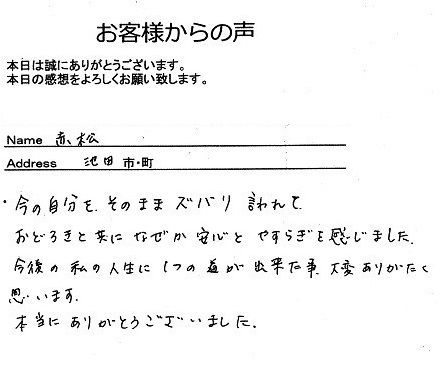 お客様からの声
本日は誠にありがとうございます。
本日の感想をよろしくお願い致します。
Name 赤松
Address 池田 市・町
・今の自分を、そのまま ズバリ 言われて
おどろきと共に なぜか 安心と やすらぎを感じました。
今後の 私の人生に 1つの道が 出来た事、大変ありがたく
思います。
本当に ありがとうございました。